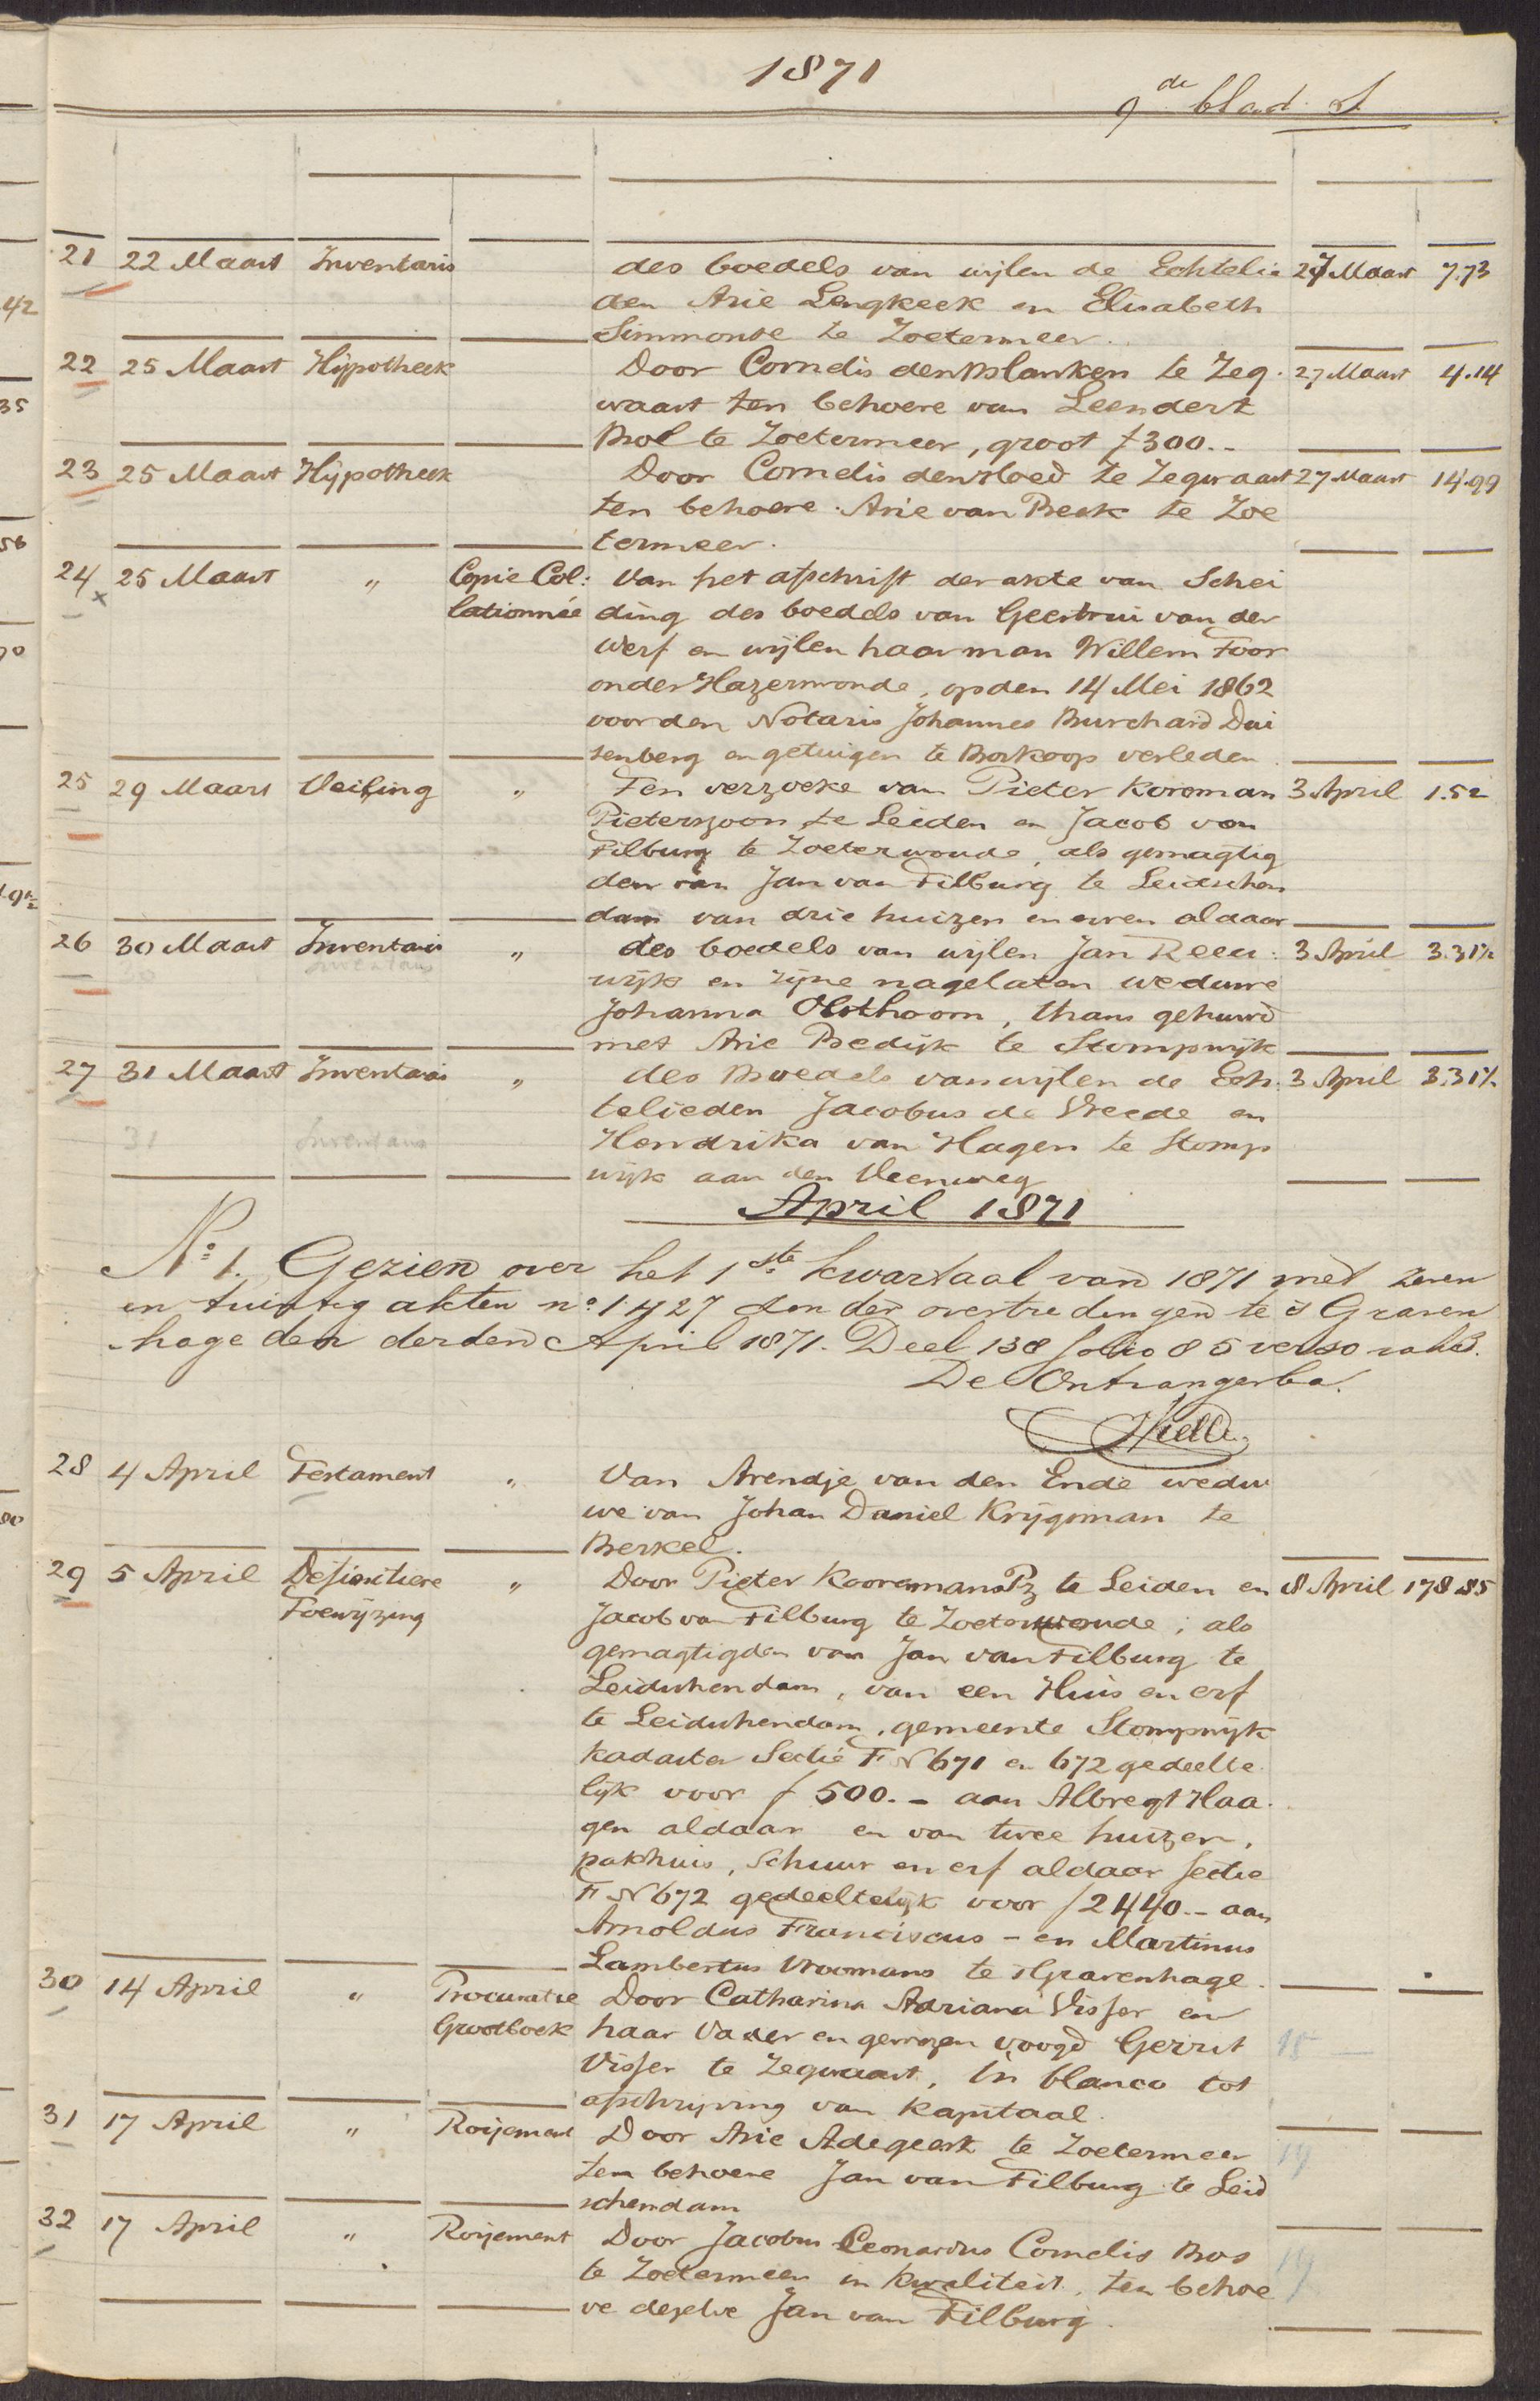 1871
9de blad. S
21 22 Maart Inventaris des boedels van wijlen de Echtelie 27 Maart 7.73
den Arie Lengkeek en Elisabeth
Simmonse te Zoetermeer.
22 25 Maart Hijpotheek Door Cornelis den Blanken te Zeg 27 Maart 4.14
waart ten behoeve van Leendert
Bol te Zoetermeer, groot f 300.-
23 25 Maart Hijpotheek Door Cornelis den Hoed te Zegwaart 27 Maart 14.99
ten behoeve Arie van Beek te Zoe
termeer.
24 25 Maart " Copie Col: Van het afschrift der akte van Schei
lationnée ding des boedels van Geertrui van der
Werf en wijlen haar man Willem Toor
onder Hazerswoude, op den 14 Mei 1862
voor den Notaris Johannes Burchard Dui
senberg en getuigen te Boskoop verleden.
25 29 Maart Veiling " Ten verzoeke van Pieter Koreman 3 April 1.52
Pieterszoon te Leiden en Jacob van
Tilburg te Zoeterwoude, als gemagtig
den van Jan van Tilburg te Leidschen
dam van drie huizen en erven aldaar
26 30 Maart Inventaris " des boedels van wijlen Jan Reeu: 3 April 3.31½
wijk en zijne nagelaten weduwe
Johanna Olsthoorn, thans gehuwd
met Arie Bedijk te Stompwijk
27 31 Maart Inventaris " des Boedels van wijlen de Ech. 3 April 3.31½
telieden Jacobus de Vreede en
31 Inventaris Hendrika van Hagen te Stomp
wijk aan den Veenweg
April 1871
No 1. Gezien over het 1ste kwartaal van 1871 met zeven
en twintig akten no 1 a 27 zonder overtredingen te s Graven
hage den derden April 1871. Deel 138 folio 85 verso vak 3.
De Ontvanger
28 4 April Testament " Van Arendje van den Ende wedu
we van Johan Daniel Krijgsman te
Berkel.
29 5 April Definitieve " Door Pieter Kooreman Pz te Leiden en 8 April 178.85
Toewijzing Jacob van Tilburg te Zoeterwoude, als
gemagtigden van Jan van Tilburg te
Leidschendam, van een Huis en erf
te Leidschendam, gemeente Stompwijk
kadaster Sectie F N 671 en 672 gedeelte
lijk voor f 500.- aan Albregt Haa
gen aldaar en van twee huizen,
pakhuis, Schuur en erf aldaar sectie
F N 672 gedeeltelijk voor f 2440.- aan
Arnoldus Franciscus - en Martinus
Lambertus Vroomans te sGravenhage.
30 14 April " Procuratie Door Catharina Adriana Visser en
Grootboek haar Vader en gewezen voogd Gerrit 15 -
Visser te Zegwaart, in blanco tot
afschrijving van Kapitaal.
31 17 April " Roijement Door Arie Adegeest te Zoetermeer 19
ten behoeve Jan van Tilburg te Leid
schendam
32 17 April " Roijement Door Jacobus Leonardus Cornelis Bos 19
te Zoetermeer in kwaliteit, ten behoe
ve dezelve Jan van Tilburg.